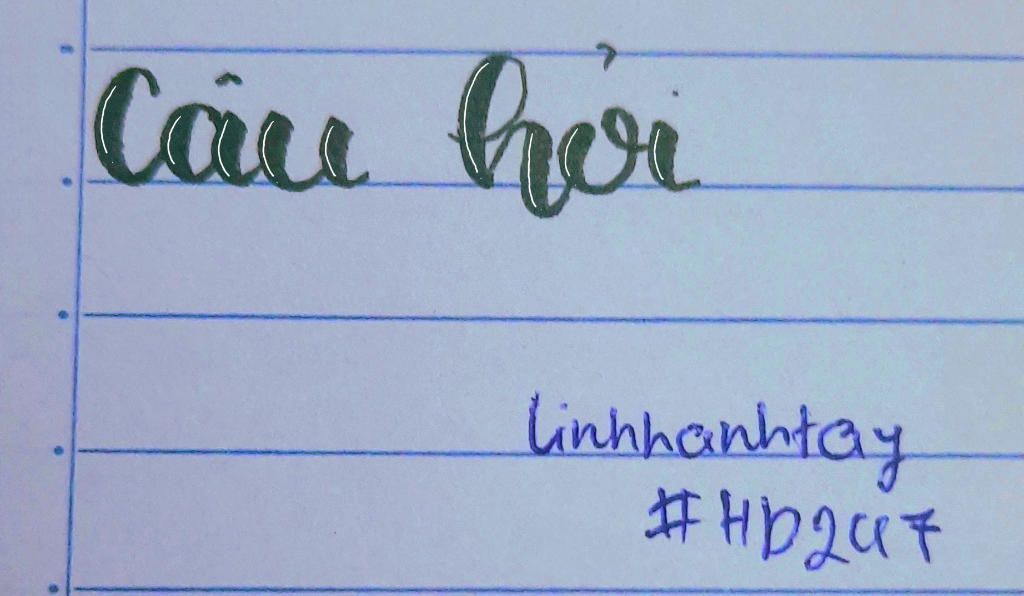 Câu hỏi
linhhanhtay
#HD247